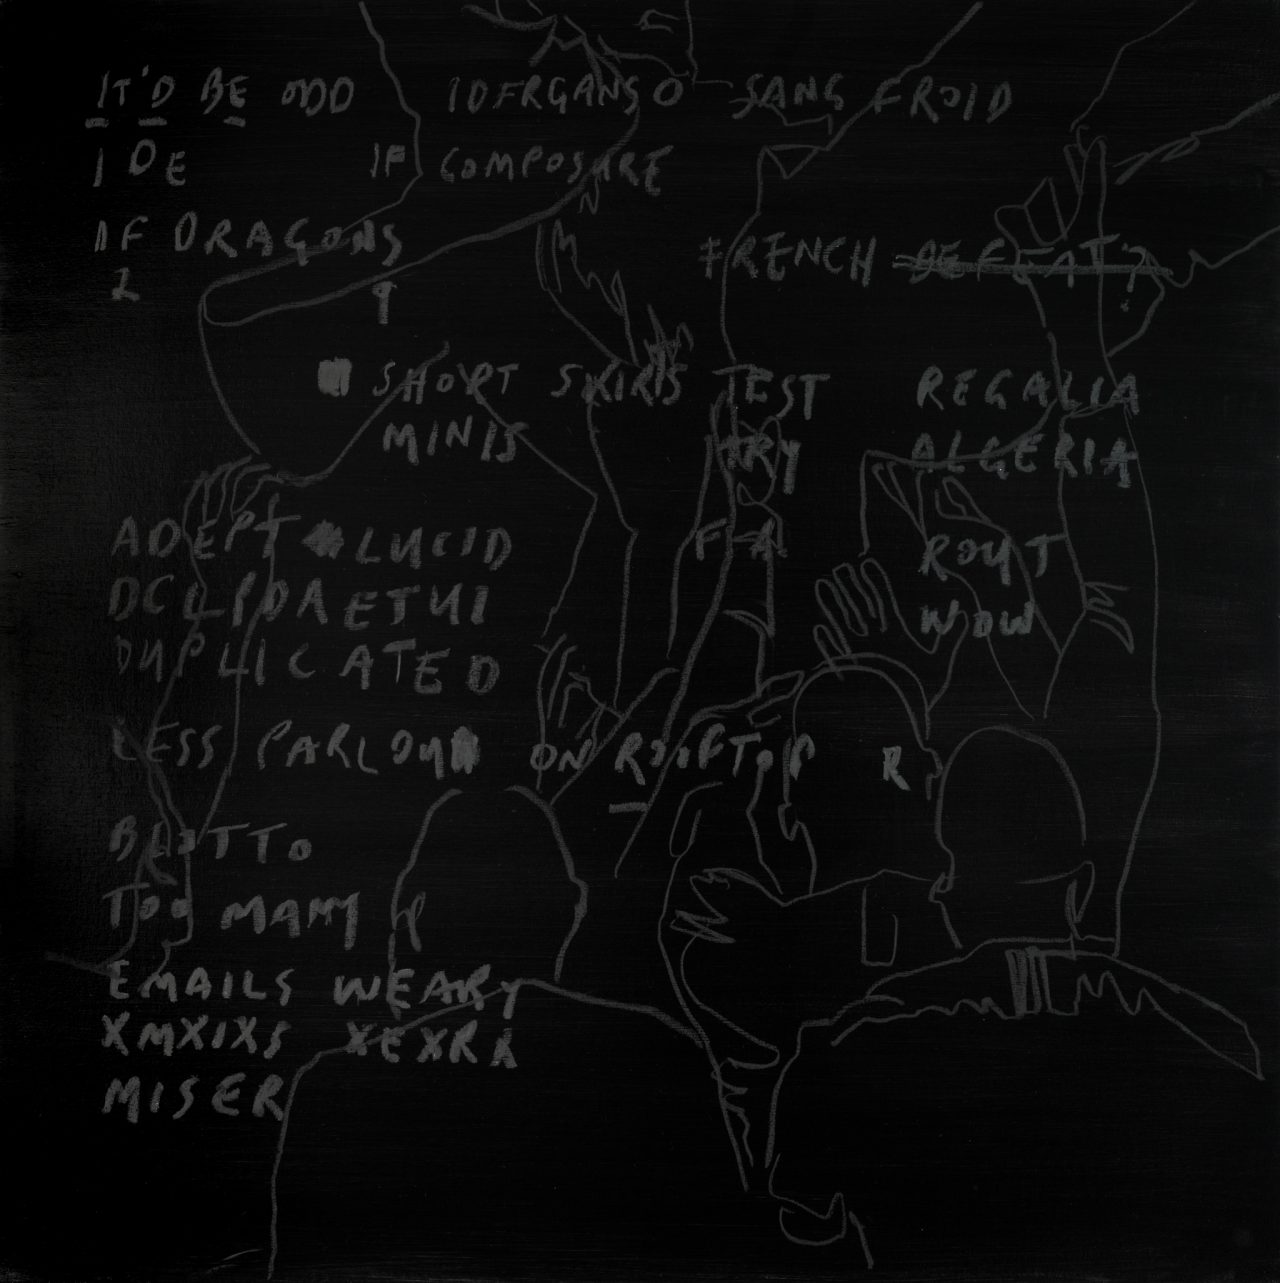 IT'D BE ODD IDFRGANSO SANG FROID
I DE IF COMPOSURE
IF DRAGONS
FRENCH DEFEAT?
SHORT SKIRTS TEST REGALIA
MINIS ARY ALGERIA
ADEPT LUCID F A ROUT
DCLPDAETUI WOW
DUPLICATED
LESS PARLOUR ON ROOFTOP R
BLOTTO
TOO MANY
EMAILS WEARY
XMXIXS XEXRX
MISER